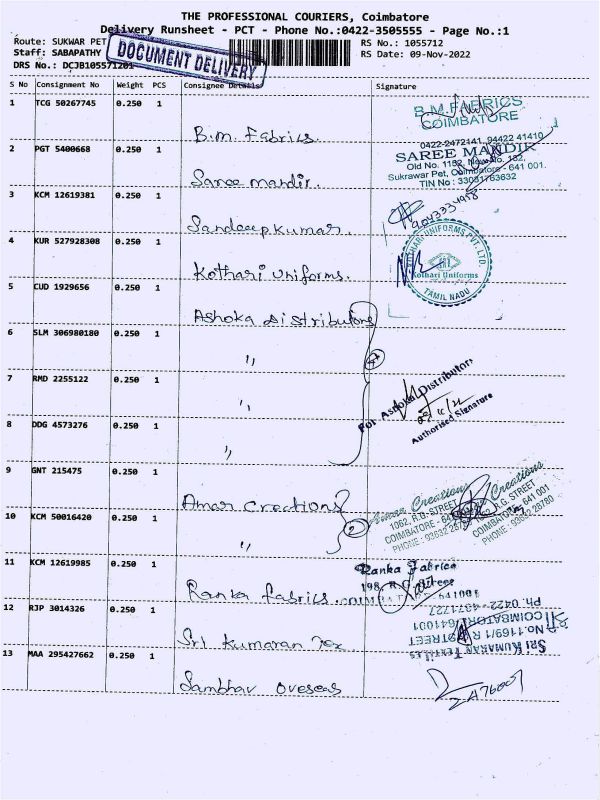 THE PROFESSIONAL COURIERS, Coimbatore
Delivery Runsheet - PCT - Phone No.:0422-3505555 - Page No.:1
Route: SUKWAR PET
RS No.: 1055712
Staff: SABAPATHY
RS Date: 09-Nov-2022
DRS No.: DCJB105571201
DOCUMENT DELIVERY
S No Consignment No Weight PCS Consignee Details Signature
1 TCG 50267745 0.250 1 B.M. Fabrics
B.M.FABRICS
COIMBATORE
2 PGT 5400668 0.250 1 Saree mandir.
0422-2472141, 94422 41410
SAREE MANDIR
Old No. 1182, New No. 182,
Sukrawar Pet, Coimbatore - 641 001.
TIN No : 33031763632
3 KCM 12619381 0.250 1 Sandeep kumar.
4 KUR 527928308 0.250 1 Kothari uniforms.
KOTHARI UNIFORMS PVT. LTD.
Kothari Uniforms
TAMIL NADU
5 CUD 1929656 0.250 1 Ashoka Distributions
6 SLM 306980180 0.250 1 "
7 RMD 2255122 0.250 1 "
8 DDG 4573276 0.250 1 "
For Ashoka Distributors
Authorised Signature
9 GNT 215475 0.250 1 Amar Creations
10 KCM 50016420 0.250 1 "
2
Amar Creations
1062, R.G. STREET
COIMBATORE - 641 001
PHONE : 93632 28780
Creations
R.G. STREET
COIMBATORE - 641 001
PHONE : 93632 28780
11 KCM 12619985 0.250 1 Ranka fabrics.
Ranka Fabrics
198, R G Street
COIMBATORE 641001
12 RJP 3014326 0.250 1 Sri Kumaran Tex
SRI KUMARAN TEXTILES
No.1169/1 R STREET
COIMBATORE 641001
Ph. 0422 - 4371727
13 MAA 295427662 0.250 1 Sambhav Overseas